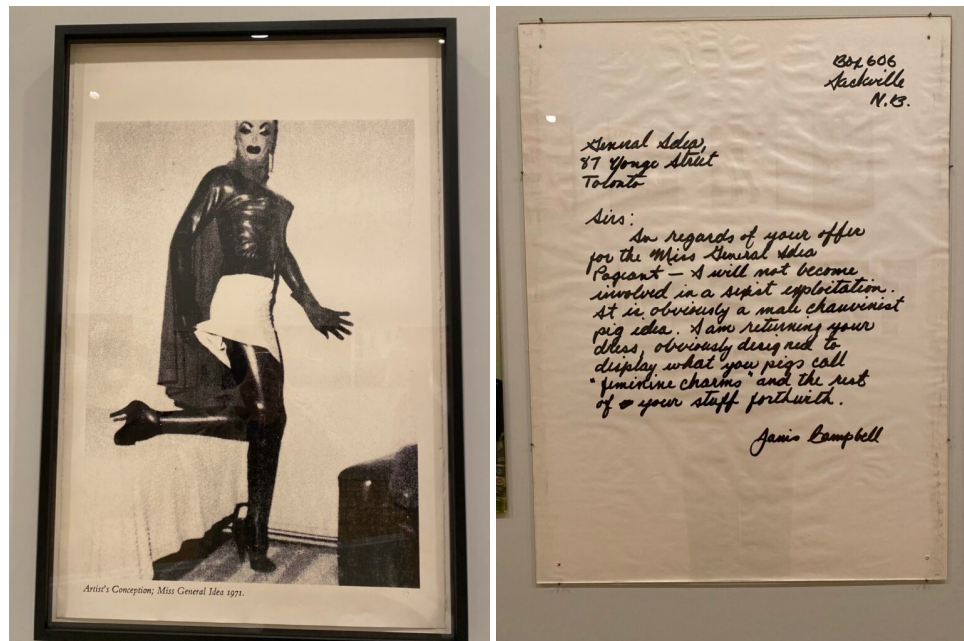 Artist's Conception; Miss General Idea 1971.
Box 606
Sackville
N.B.
General Idea,
87 Yonge Street
Toronto
Sirs:
In regards of your offer
for the Miss General Idea
Pageant — I will not become
involved in a sexist exploitation.
It is obviously a male chauvinist
pig idea. I am returning your
dress, obviously designed to
display what you pigs call
"feminine charms" and the rest
of your stuff forthwith.
Janis Campbell